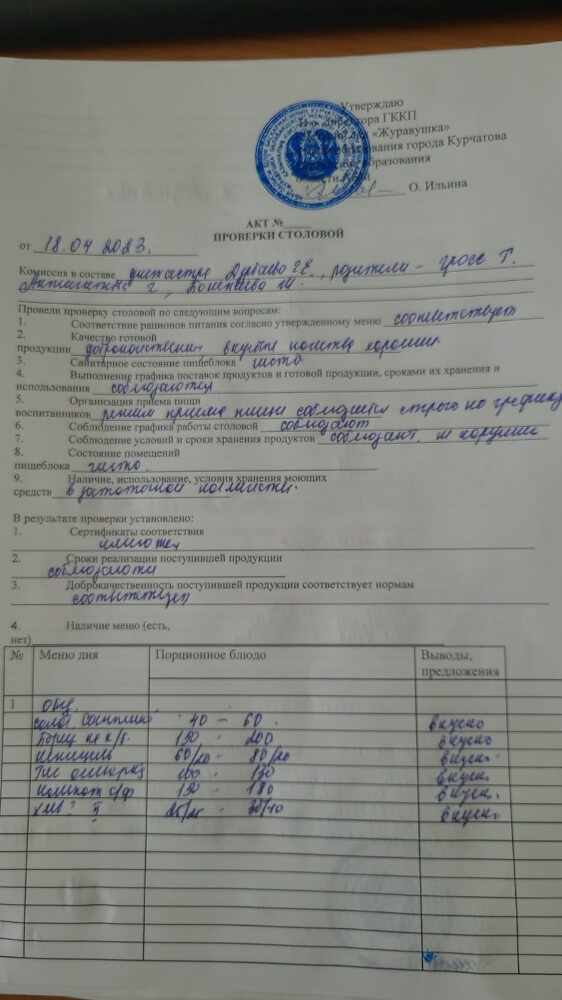 Утверждаю
директора ГККП
«Журавушка»
образования города Курчатова
образования
области
О. Ильина
АКТ №
ПРОВЕРКИ СТОЛОВОЙ
от 18.04 2023.
Комиссия в составе родители -
Провели проверку столовой по следующим вопросам:
1. Соответствие рационов питания согласно утвержденному меню соответствует
2. Качество готовой
продукции хорошии.
3. Санитарное состояние пищеблока чисто.
4. Выполнение графика поставок продуктов и готовой продукции, сроками их хранения и
использования соблюдаются
5. Организация приема пищи
воспитанников режим приема пищи соблюдается строго по графику
6. Соблюдение графика работы столовой соблюдают
7. Соблюдение условий и сроки хранения продуктов соблюдают, не
8. Состояние помещений
пищеблока чисто.
9. Наличие, использование, условия хранения моющих
средств в достаточном количестве.
В результате проверки установлено:
1. Сертификаты соответствия
2. Сроки реализации поступившей продукции
3. Доброкачественность поступившей продукции соответствует нормам
соответствует
4. Наличие меню (есть,
нет)
№ Меню дня Порционное блюдо Выводы,
предложения
1
салат 40 - 60. вкусно
Борщ на к/б. 150 - 200 вкусно
60/20 - 80/20 вкусно
130 вкусн.
компот с/ф 150 - 180 вкусн.
вкусн.